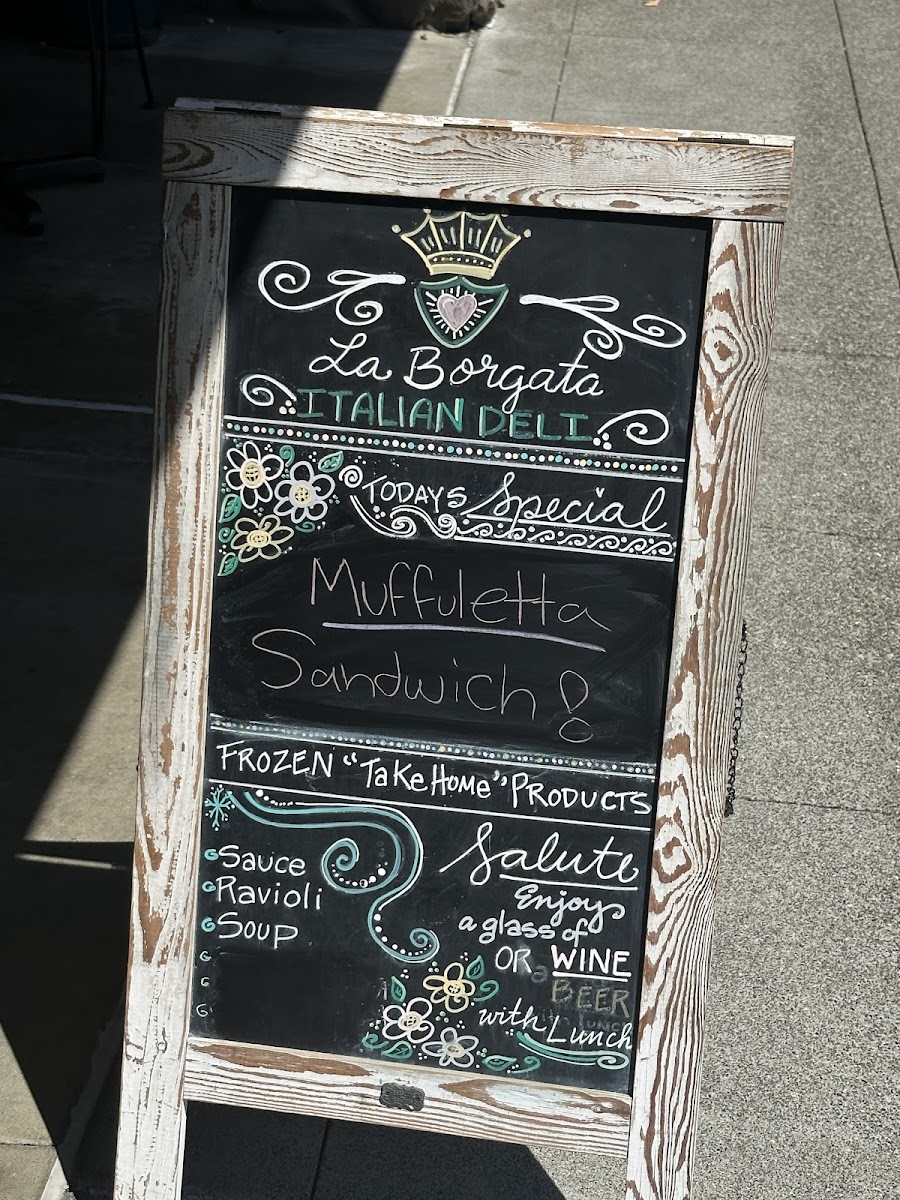 La Borgata
ITALIAN DELI
TODAYS Special
Muffuletta
Sandwich!
FROZEN "TakeHome" PRODUCTS
Sauce
Ravioli
Soup
Salute
Enjoy
a glass of
OR WINE
a BEER
with Lunch